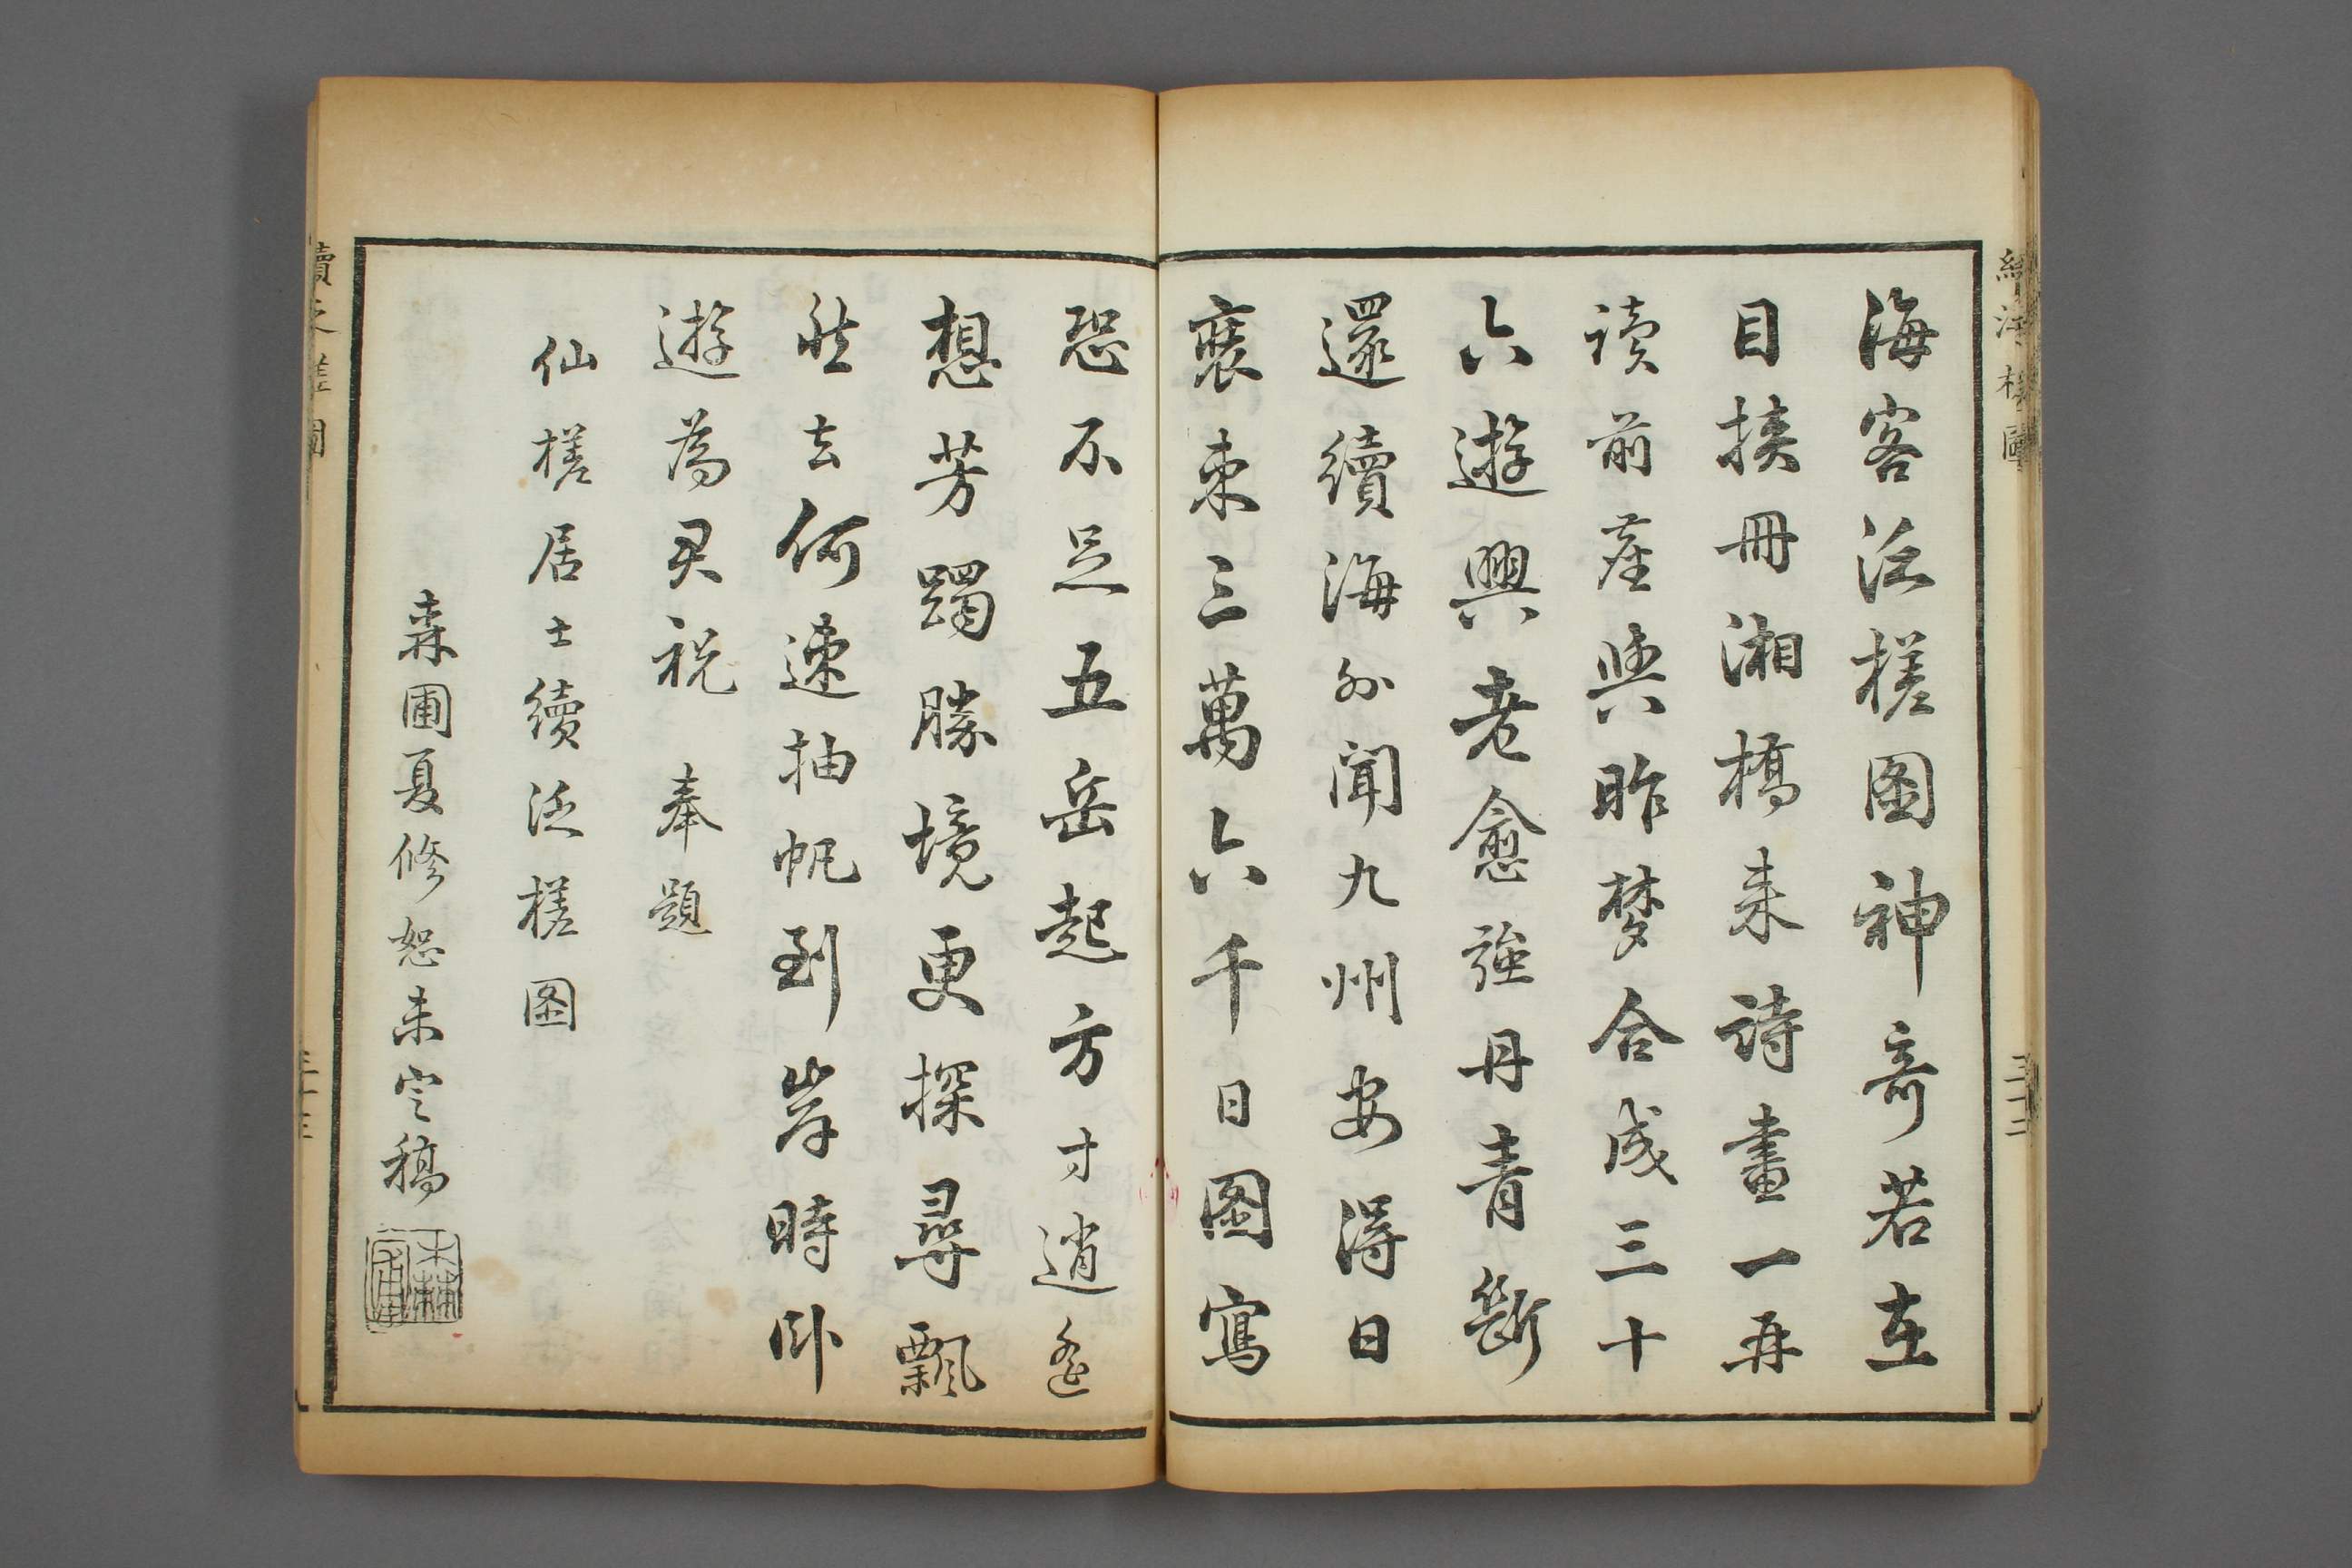 海客泛槎图神奇若在
目挾冊湘橋来詩畫一再
读前塵與昨梦合成三十
六遊興老愈強丹青斷
還續海外聞九州安得日
裹束三萬六千日圖寫
恐不足五岳起方寸逍遙
想芳躅勝境更探尋飄
然去何速抽帆到岸時卧
遊為君祝　奉題
仙槎居士續泛槎图
森圃夏修恕未定稿
續泛槎圖
三十三